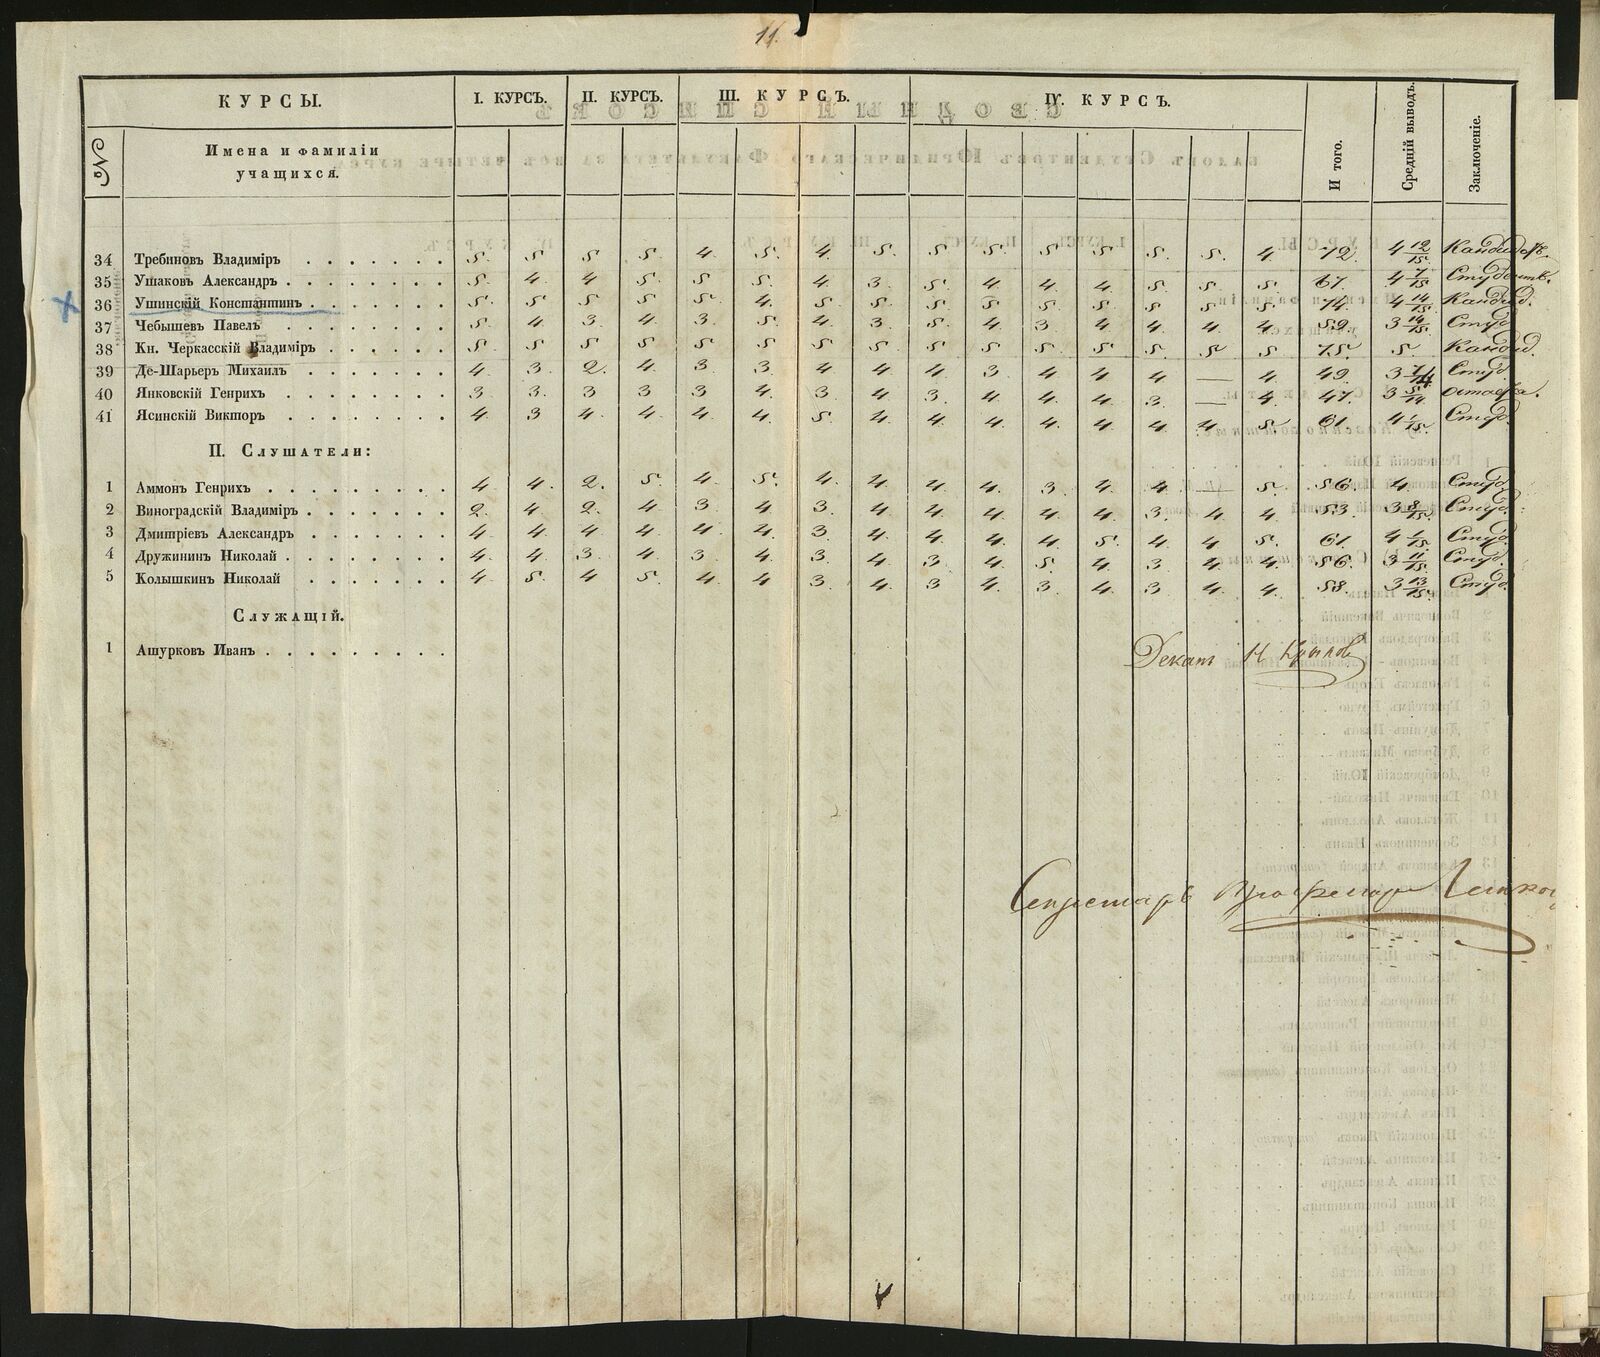 11.
КУРСЫ. I. КУРСЪ. II. КУРСЪ. III. КУРСЪ. IV. КУРСЪ. И того. Средній выводъ. Заключеніе.
№ Имена и фамиліи
учащихся.
34 Требиновъ Владиміръ 5. 5 5. 5. 4 5. 4. 5. 5. 5. 5. 5. 5. 5. 4. 72. 4 12/15.
35 Ушаковъ Александръ 5. 4 4. 5. 5. 5. 4. 3. 5. 4. 4. 4. 5. 5. 5. 67. 4 7/15
36 Ушинскій Константинъ 5. 5. 5. 5. 5. 4. 5. 5. 5. 5. 5. 5. 5. 5. 5. 74. 4 14/15 Кандид.
37 Чебышевъ Павелъ 5. 4. 3 4. 3. 5. 4. 3. 5. 4. 3. 4. 4. 4. 4. 59. 3 14/15. Студ
38 Кн. Черкасскій Владиміръ 5. 5. 5. 5. 5. 5. 5. 5. 5. 5. 5. 5. 5. 5 5. 75. 5. Кандид.
39 Де-Шарьеръ Михаилъ 4. 3. 2. 4. 3 3. 4 4. 4. 3. 4. 4. 4. — 4. 49. Студ.
40 Янковскій Генрихъ 3. 3. 3. 3. 3. 4. 3. 4. 3. 4. 4. 4. 3. — 4. 47. 3 5/14.
41 Ясинскій Викторъ 4. 3 4. 4. 4. 4. 5. 4. 4. 4. 4. 4. 4. 4. 5. 61. 4 1/15. Студ.
II. Слушатели:
1 Аммонъ Генрихъ 4 4. 2. 5. 4. 5. 4. 4. 4. 4. 3. 4. 4. — 5. 56. 4. Студ.
2 Виноградскій Владиміръ 2. 4. 2. 4. 3. 4. 3. 4. 4. 4. 4. 4. 3. 4. 4. 53. 3 8/15. Студ.
3 Дмитріевъ Александръ 4. 4. 4. 4. 4. 4. 3. 4. 4. 4. 4. 5. 4. 4. 5. 61. 4 1/15 Студ.
4 Дружининъ Николай 4. 4. 3 4. 3. 4. 3. 4. 3. 4. 5. 4. 3. 4. 4. 56. 3 11/15 Студ.
5 Колышкинъ Николай 4. 5. 4 5. 4. 4. 3. 4. 3 4. 3. 4. 3 4. 4. 58. 3 13/15. Студ.
Служащій.
1 Ашурковъ Иванъ
Деканъ Н Крылов
Секретарь Профессор Лешков